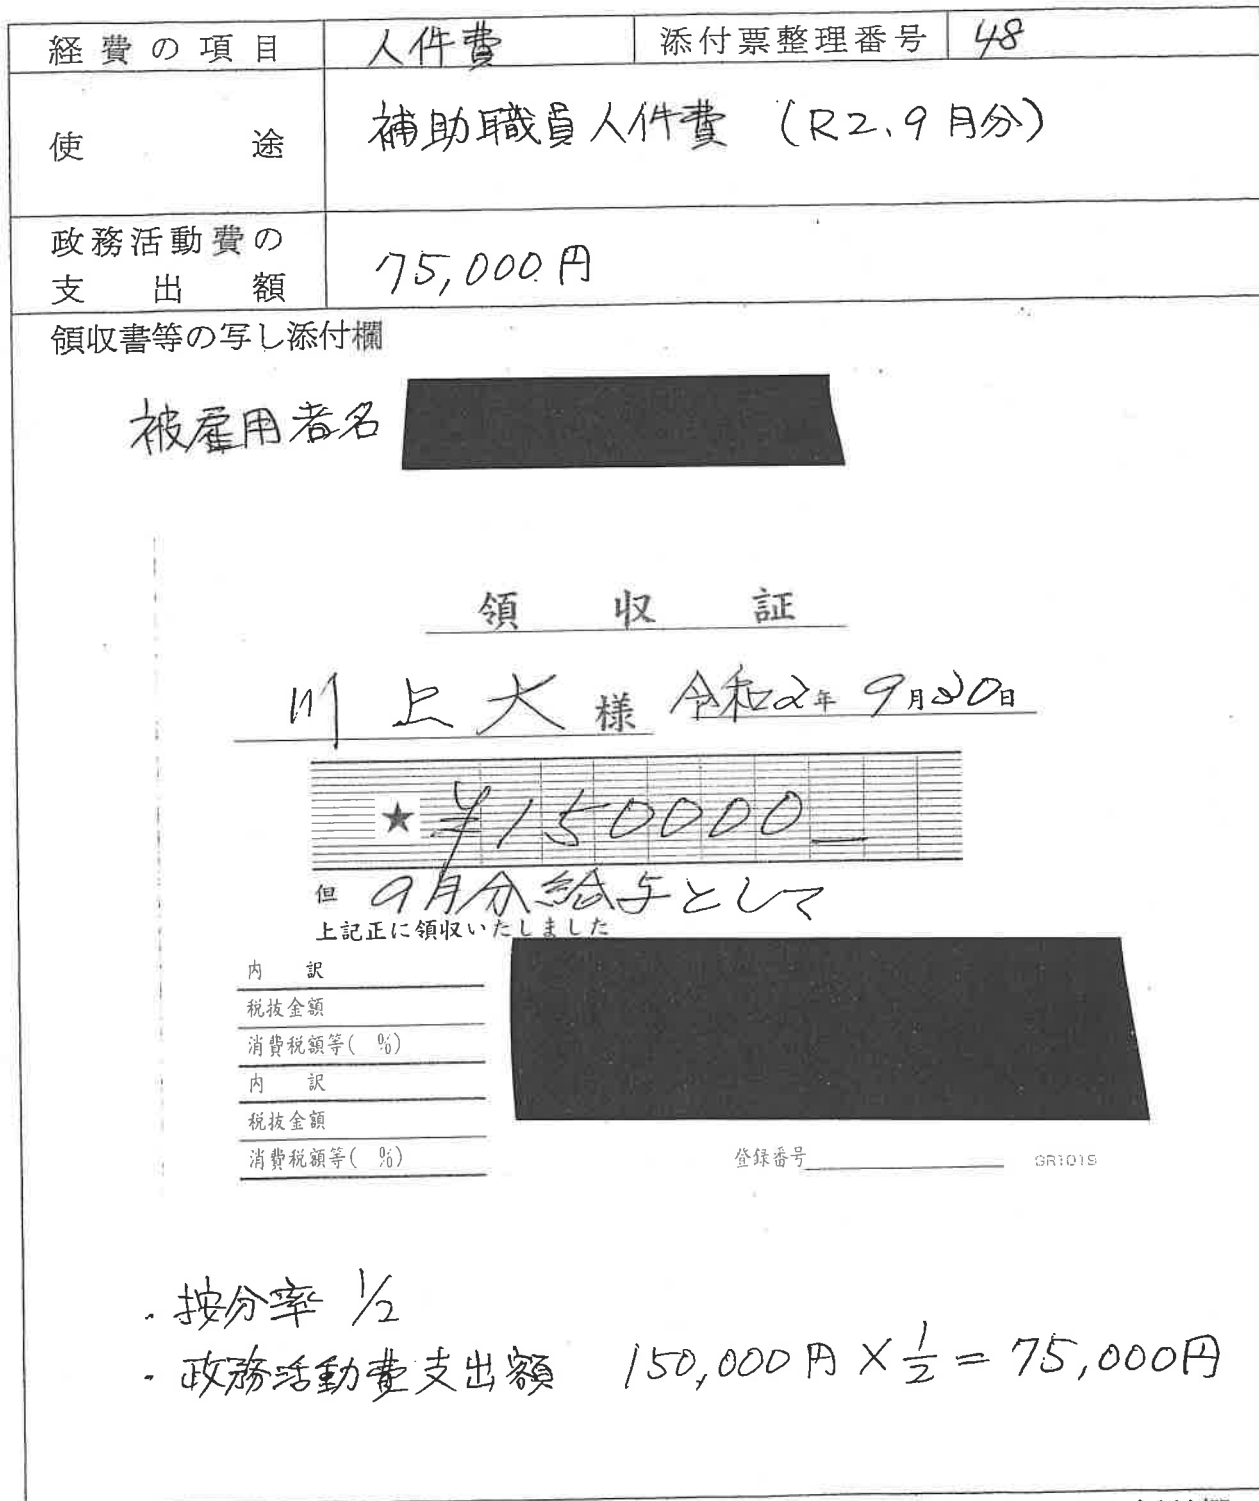 経費の項目 人件費 添付票整理番号 48
使途 補助職員人件費 (R2.9月分)
政務活動費の
支出額 75,000円
領収書等の写し添付欄
被雇用者名
領収証
川上大様 令和2年9月30日
★ ¥150000
但 9月分給与として
上記正に領収いたしました
内訳
税抜金額
消費税額等( %)
内訳
税抜金額
消費税額等( %)
登録番号 GR101S
・按分率 1/2
・政務活動費支出額 150,000円×1/2=75,000円